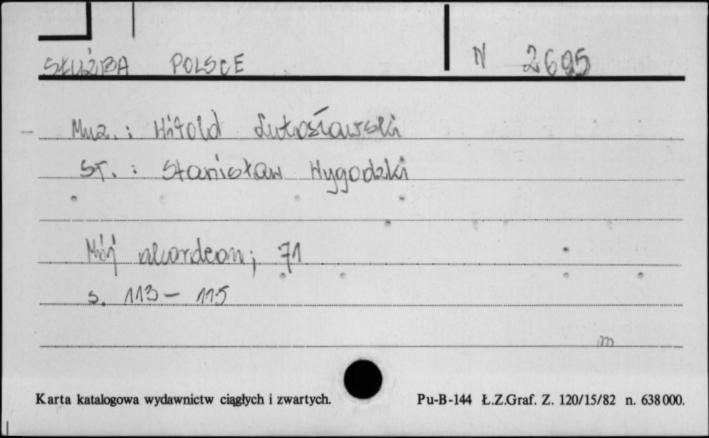 SŁUŻBA POLSCE N 2695
Muz.: Witold Lutosławski
Sł.: Stanisław Wygodzki
Mój akordeon; 71
s. 113 - 115
m
Karta katalogowa wydawnictw ciągłych i zwartych. Pu-B-144 Ł.Z.Graf. Z. 120/15/82 n. 638 000.